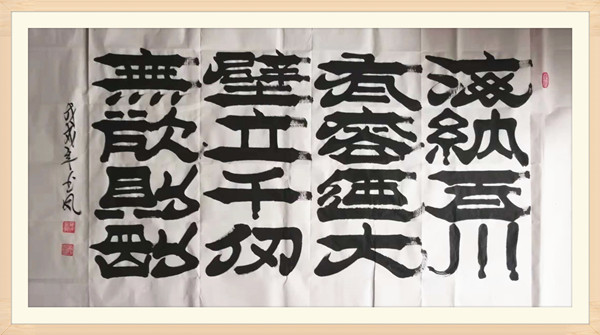 海納百川
有容迺大
壁立千仞
無欲則剛
戊戌年